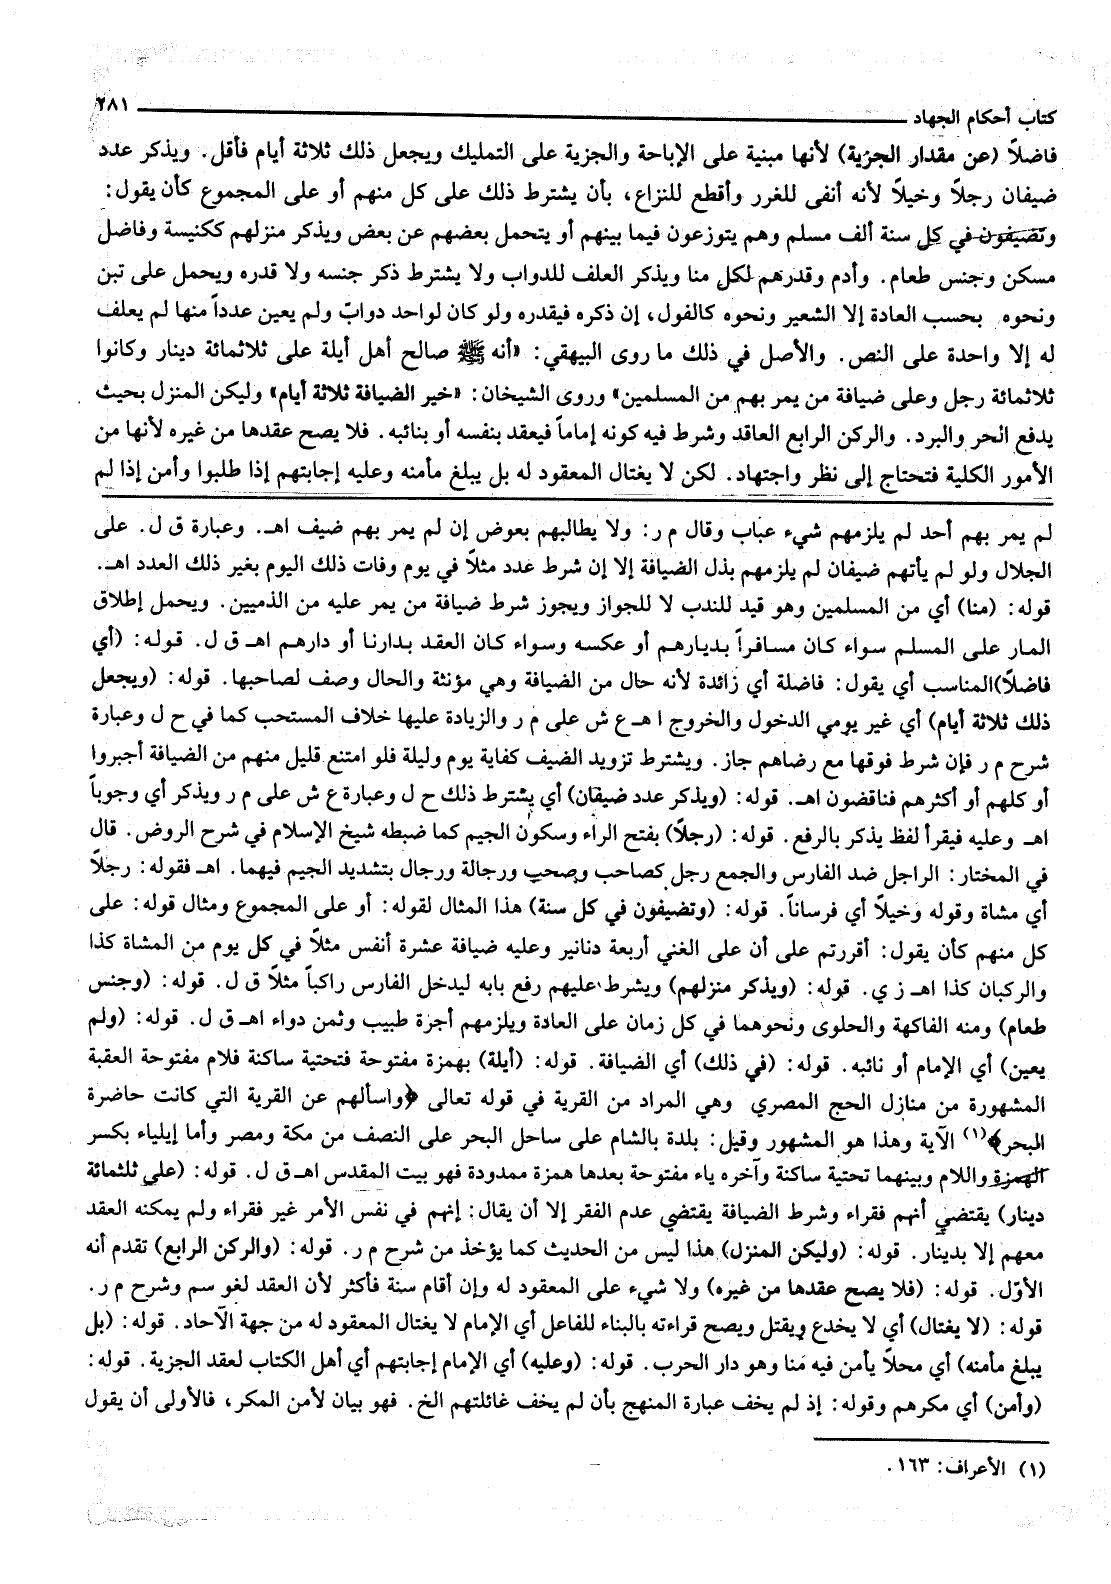 كتاب أحكام الجهاد ٢٨١
فاضلاً (عن مقدار الجزية) لأنها مبنية على الإباحة والجزية على التمليك ويجعل ذلك ثلاثة أيام فأقل. ويذكر عدد
ضيفان رجلاً وخيلاً لأنه أنفى للغرر وأقطع للنزاع، بأن يشترط ذلك على كل منهم أو على المجموع كأن يقول:
وتضيفون في كل سنة ألف مسلم وهم يتوزعون فيما بينهم أو يتحمل بعضهم عن بعض ويذكر منزلهم ككنيسة وفاضل
مسكن وجنس طعام. وأدم وقدرهم لكل منا ويذكر العلف للدواب ولا يشترط ذكر جنسه ولا قدره ويحمل على تبن
ونحوه بحسب العادة إلا الشعير ونحوه كالفول، إن ذكره فيقدره ولو كان لواحد دوابّ ولم يعين عدداً منها لم يعلف
له إلا واحدة على النص. والأصل في ذلك ما روى البيهقي: «أنه ﷺ صالح أهل أيلة على ثلاثمائة دينار وكانوا
ثلاثمائة رجل وعلى ضيافة من يمر بهم من المسلمين» وروى الشيخان: «خير الضيافة ثلاثة أيام» وليكن المنزل بحيث
يدفع الحر والبرد. والركن الرابع العاقد وشرط فيه كونه إماماً فيعقد بنفسه أو بنائبه. فلا يصح عقدها من غيره لأنها من
الأمور الكلية فتحتاج إلى نظر واجتهاد. لكن لا يغتال المعقود له بل يبلغ مأمنه وعليه إجابتهم إذا طلبوا وأمن إذا لم
لم يمر بهم أحد لم يلزمهم شيء عباب وقال م ر: ولا يطالبهم بعوض إن لم يمر بهم ضيف اهـ. وعبارة ق ل. على
الجلال ولو لم يأتهم ضيفان لم يلزمهم بذل الضيافة إلا إن شرط عدد مثلاً في يوم وفات ذلك اليوم بغير ذلك العدد اهـ.
قوله: (منا) أي من المسلمين وهو قيد للندب لا للجواز ويجوز شرط ضيافة من يمر عليه من الذميين. ويحمل إطلاق
المار على المسلم سواء كان مسافراً بديارهم أو عكسه وسواء كان العقد بدارنا أو دارهم اهـ ق ل. قوله: (أي
فاضلاً)المناسب أي يقول: فاضلة أي زائدة لأنه حال من الضيافة وهي مؤنثة والحال وصف لصاحبها. قوله: (ويجعل
ذلك ثلاثة أيام) أي غير يومي الدخول والخروج اهـ ع ش على م ر والزيادة عليها خلاف المستحب كما في ح ل وعبارة
شرح م ر فإن شرط فوقها مع رضاهم جاز. ويشترط تزويد الضيف كفاية يوم وليلة فلو امتنع قليل منهم من الضيافة أجبروا
أو كلهم أو أكثرهم فناقضون اهـ. قوله: (ويذكر عدد ضيفان) أي يشترط ذلك ح ل وعبارة ع ش على م ر ويذكر أي وجوباً
اهـ وعليه فيقرأ لفظ يذكر بالرفع. قوله: (رجلاً) بفتح الراء وسكون الجيم كما ضبطه شيخ الإسلام في شرح الروض. قال
في المختار: الراجل ضد الفارس والجمع رجل كصاحب وصحب ورجالة ورجال بتشديد الجيم فيهما. اهـ فقوله: رجلاً
أي مشاة وقوله وخيلاً أي فرساناً. قوله: (وتضيفون في كل سنة) هذا المثال لقوله: أو على المجموع ومثال قوله: على
كل منهم كأن يقول: أقررتم على أن على الغني أربعة دنانير وعليه ضيافة عشرة أنفس مثلاً في كل يوم من المشاة كذا
والركبان كذا اهـ ز ي. قوله: (ويذكر منزلهم) ويشرط عليهم رفع بابه ليدخل الفارس راكباً مثلاً ق ل. قوله: (وجنس
طعام) ومنه الفاكهة والحلوى ونحوهما في كل زمان على العادة ويلزمهم أجرة طبيب وثمن دواء اهـ ق ل. قوله: (ولم
يعين) أي الإمام أو نائبه. قوله: (في ذلك) أي الضيافة. قوله: (أيلة) بهمزة مفتوحة فتحتية ساكنة فلام مفتوحة العقبة
المشهورة من منازل الحج المصري وهي المراد من القرية في قوله تعالى ﴿واسألهم عن القرية التي كانت حاضرة
البحر﴾(١) الآية وهذا هو المشهور وقيل: بلدة بالشام على ساحل البحر على النصف من مكة ومصر وأما إيلياء بكسر
الهمزة واللام وبينهما تحتية ساكنة وآخره ياء مفتوحة بعدها همزة ممدودة فهو بيت المقدس اهـ ق ل. قوله: (على ثلثمائة
دينار) يقتضي أنهم فقراء وشرط الضيافة يقتضي عدم الفقر إلا أن يقال: إنهم في نفس الأمر غير فقراء ولم يمكنه العقد
معهم إلا بدينار. قوله: (وليكن المنزل) هذا ليس من الحديث كما يؤخذ من شرح م ر. قوله: (والركن الرابع) تقدم أنه
الأوّل. قوله: (فلا يصح عقدها من غيره) ولا شيء على المعقود له وإن أقام سنة فأكثر لأن العقد لغو سم وشرح م ر.
قوله: (لا يغتال) أي لا يخدع ويقتل ويصح قراءته بالبناء للفاعل أي الإمام لا يغتال المعقود له من جهة الآحاد. قوله: (بل
يبلغ مأمنه) أي محلاً يأمن فيه منا وهو دار الحرب. قوله: (وعليه) أي الإمام إجابتهم أي أهل الكتاب لعقد الجزية. قوله:
(وأمن) أي مكرهم وقوله: إذ لم يخف عبارة المنهج بأن لم يخف غائلتهم الخ. فهو بيان لأمن المكر، فالأولى أن يقول
(١) الأعراف: ١٦٣.